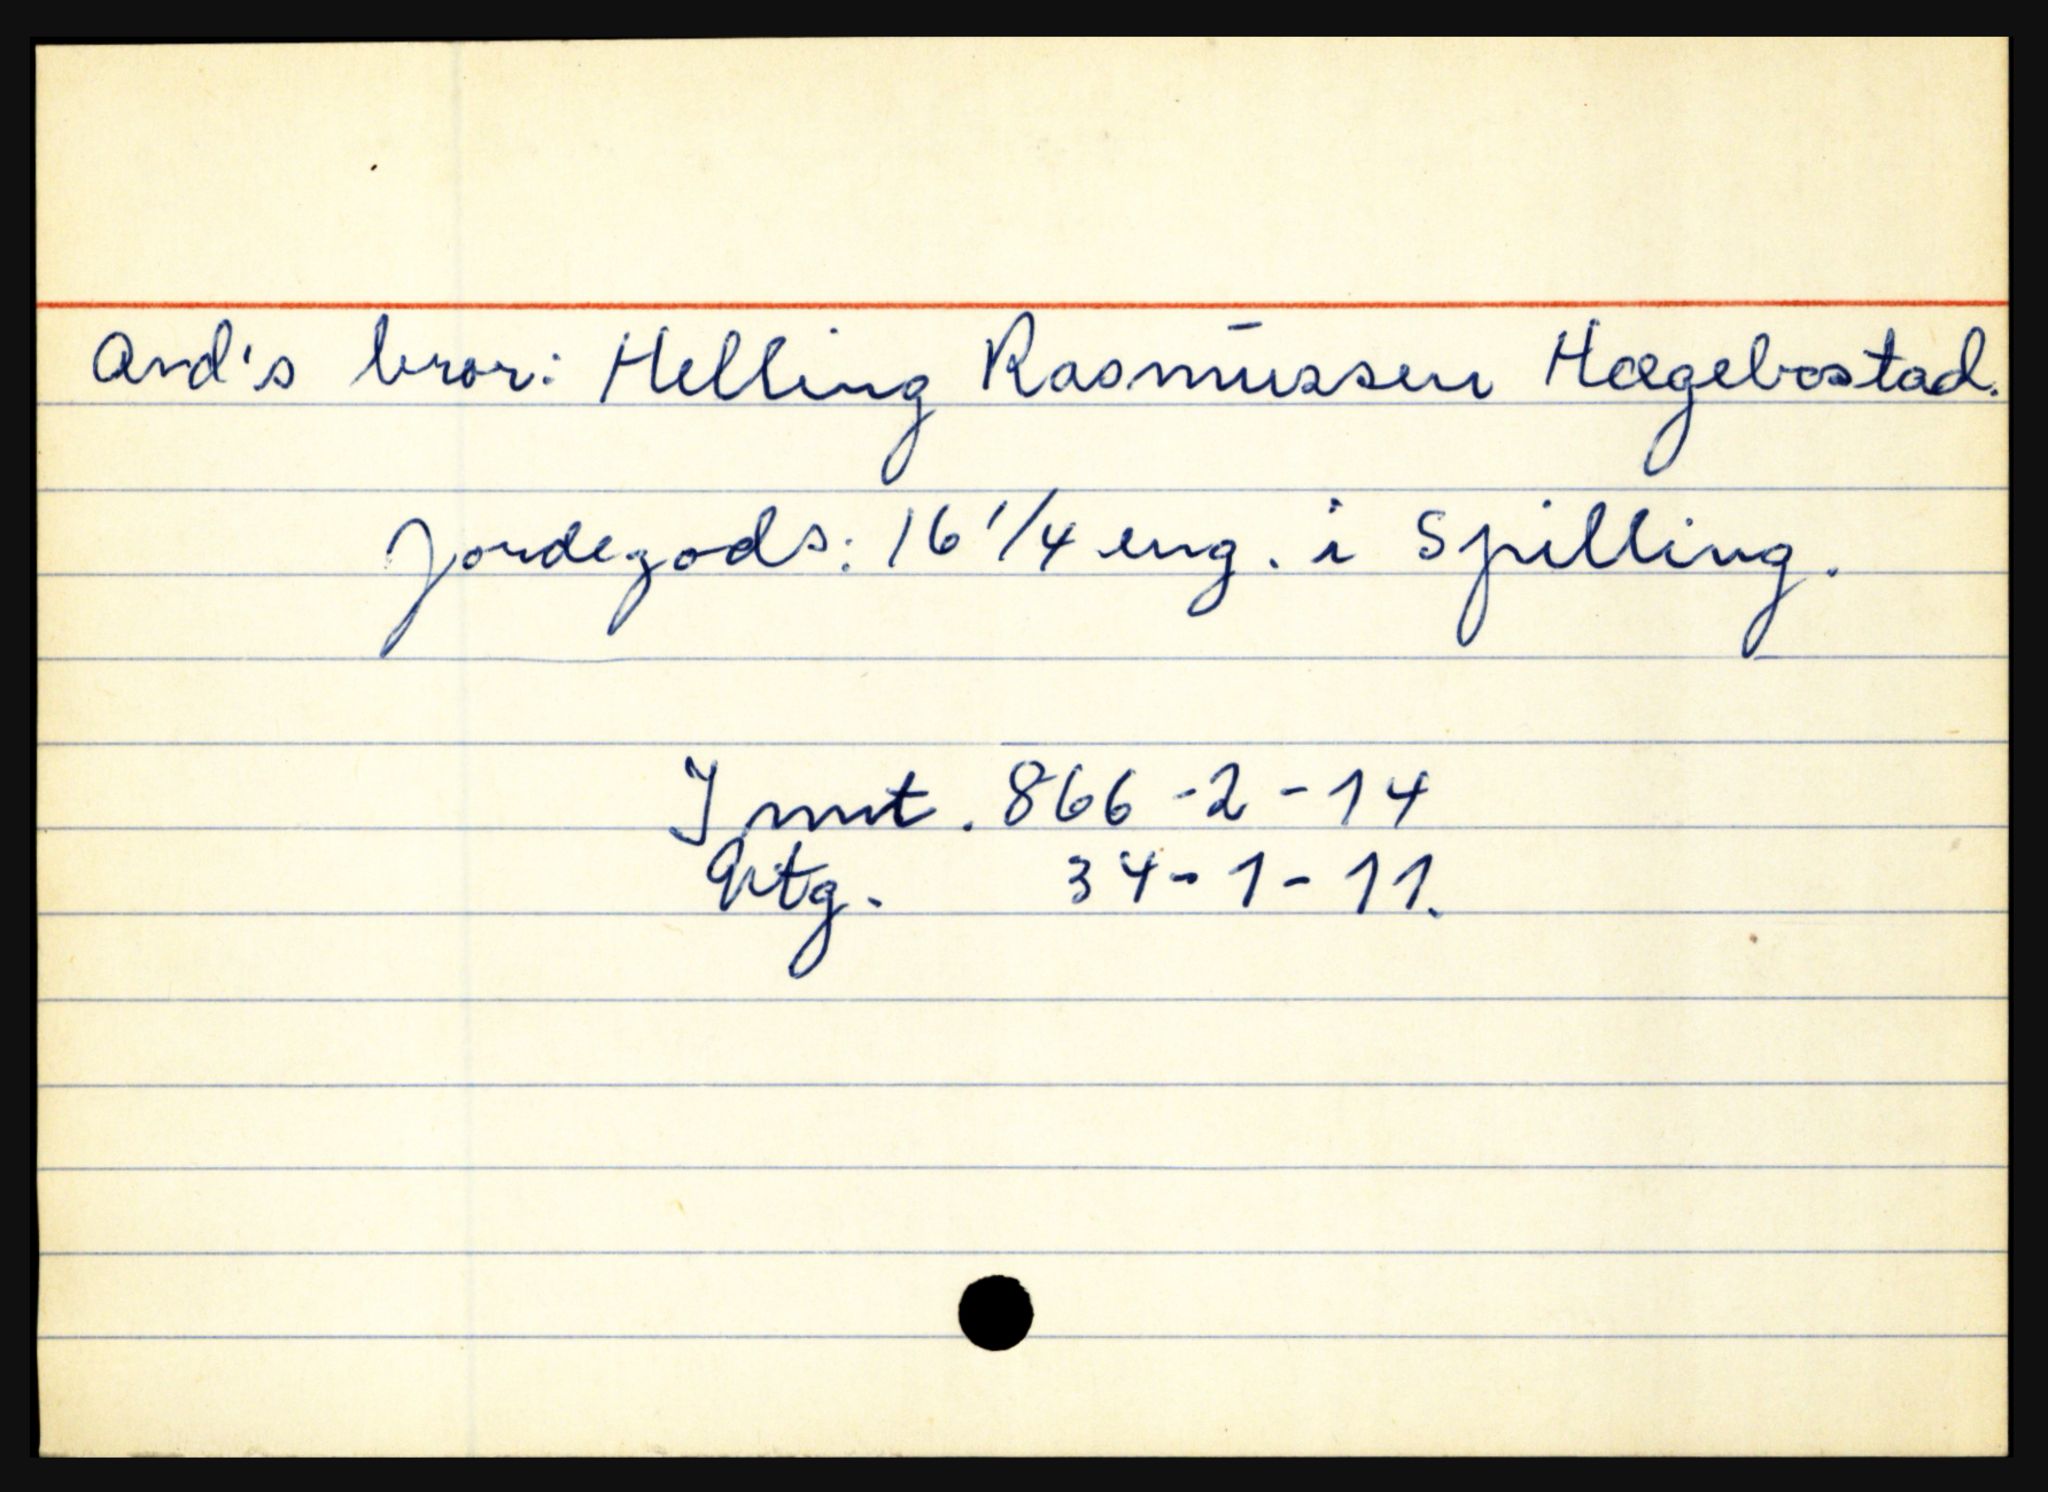 Avd's bror: Helling Rasmussen Hægebostad.
Jordegods: 16 1/4 eng. i Spilling.
Innt. 866-2-14
Utg. 34-1-11.